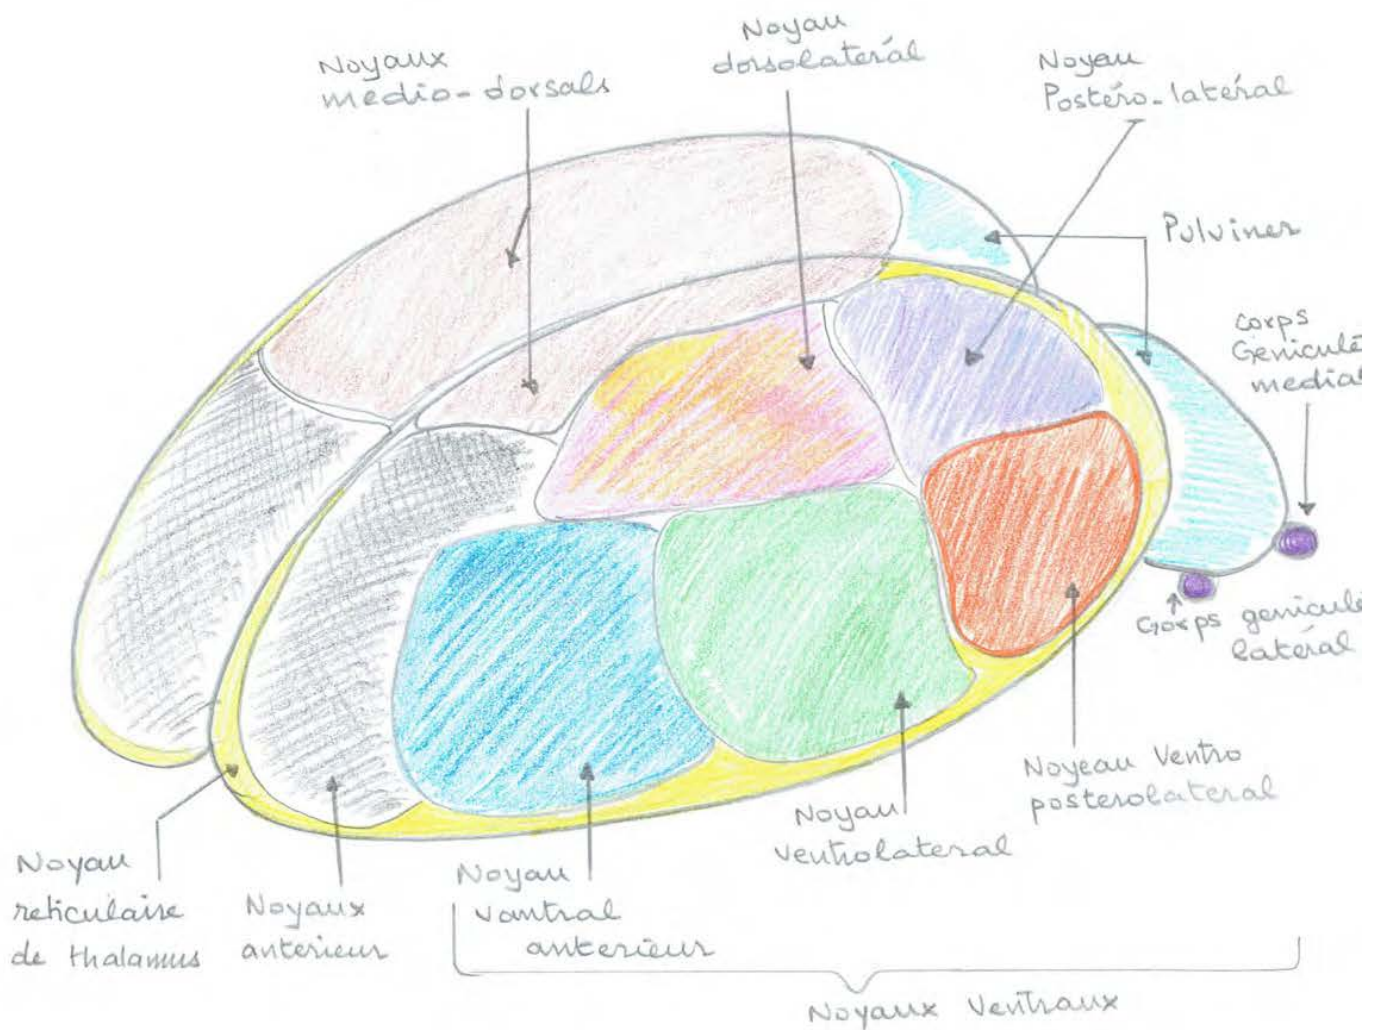 Noyaux
medio-dorsals
Noyau
dorsolatéral
Noyau
Postéro-latéral
Pulviner
Corps
Geniculé
medial
Corps geniculé
latéral
Noyeau Ventro
posterolateral
Noyau
ventrolateral
Noyau
vantral
anterieur
Noyaux
anterieur
Noyau
reticulaire
de thalamus
Noyaux Ventraux